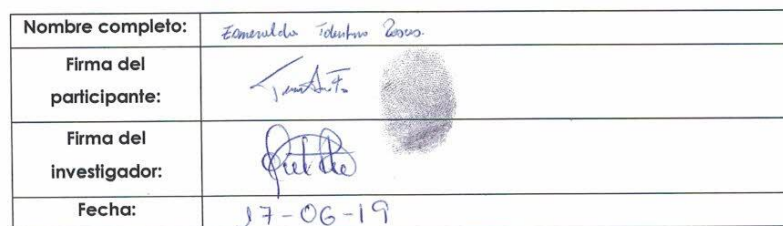 Nombre completo: Esmeralda Tolentino Rosas.
Firma del
participante:
Firma del
investigador:
Fecha: 17-06-19